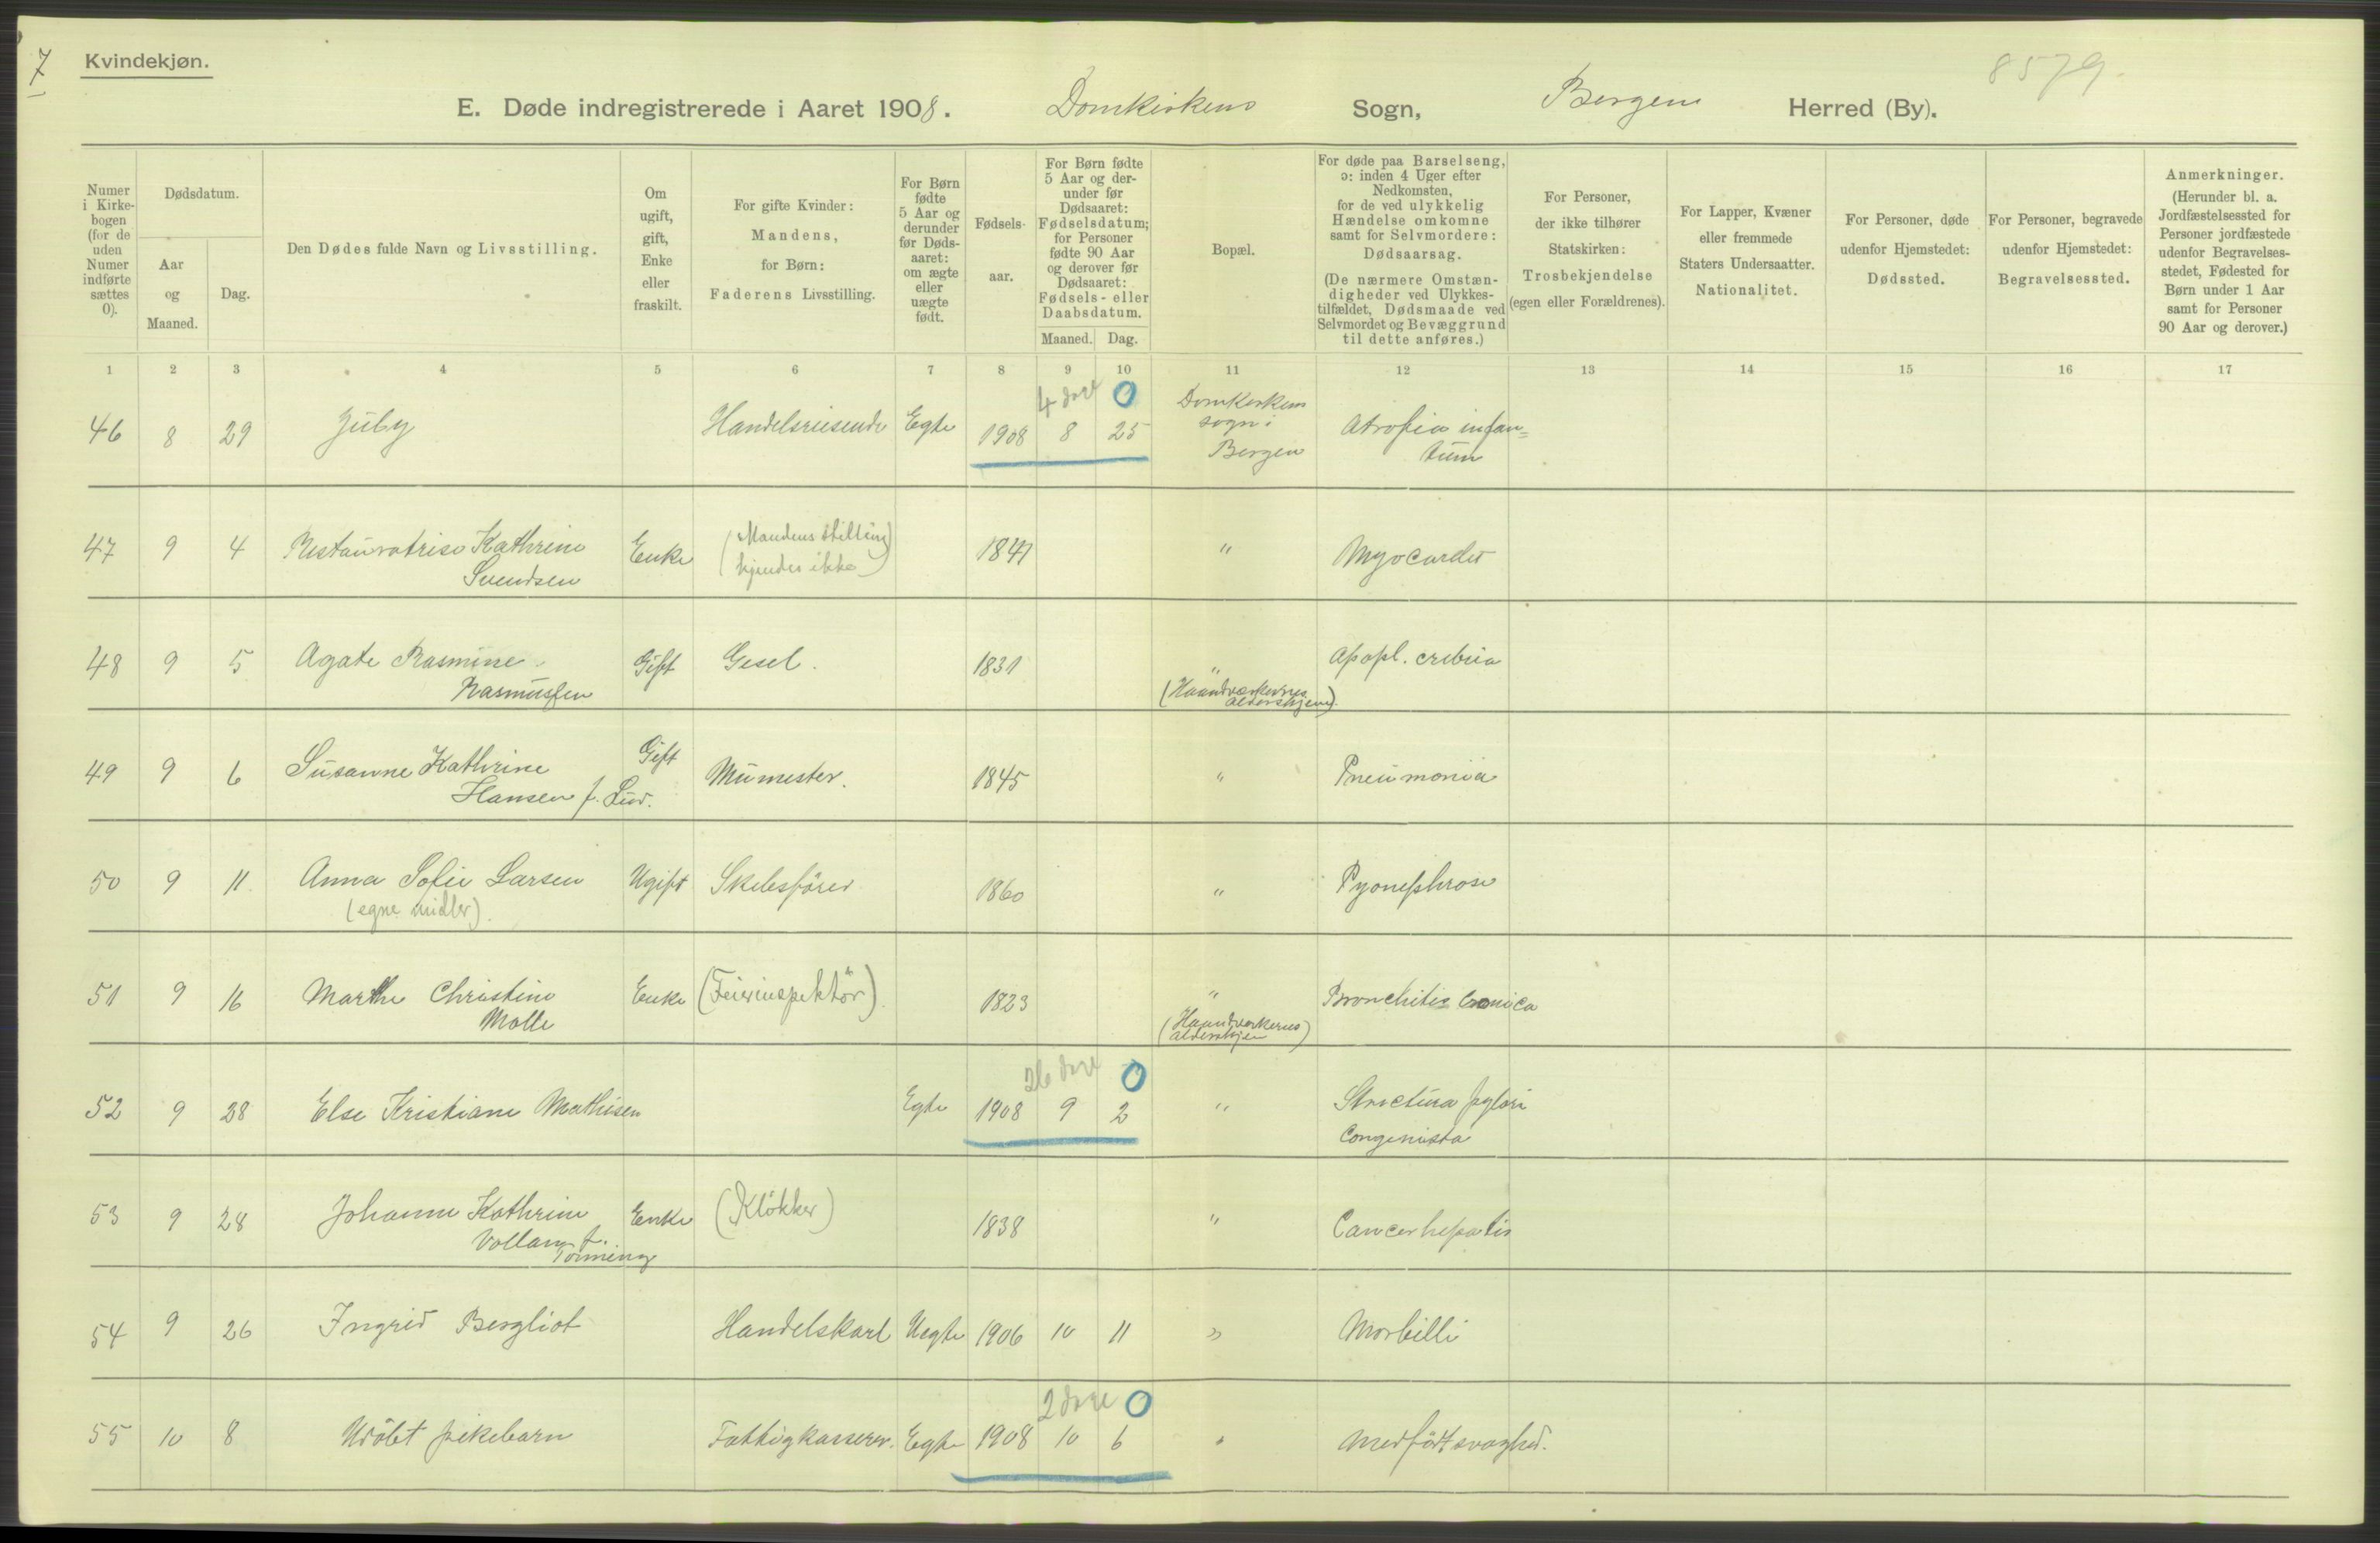 7
Kvindekjøn.
8579.
E. Døde indregistrerede i Aaret 1908. Domkirkens Sogn, Bergens Herred (By).
Numer i Kirke-bogen (for de uden Numer indførte sættes 0).
Dødsdatum.
Aar og Maaned.
Dag.
Den Dødes fulde Navn og Livsstilling.
Om ugift, gift, Enke eller fraskilt.
For gifte Kvinder: Mandens, for Børn: Faderens Livsstilling.
For Børn fødte 5 Aar og derunder før Døds-aaret: om ægte eller uægte født.
Fødsels-aar.
For Børn fødte 5 Aar og der-under før Dødsaaret: Fødselsdatum; for Personer fødte 90 Aar og derover før Dødsaaret: Fødsels- eller Daabsdatum.
Maaned. Dag.
Bopæl.
For døde paa Barselseng, ɔ: inden 4 Uger efter Nedkomsten, for de ved ulykkelig Hændelse omkomne samt for Selvmordere: Dødsaarsag.
(De nærmere Omstæn-digheder ved Ulykkes-tilfældet, Dødsmaade ved Selvmordet og Bevæggrund til dette anføres.)
For Personer, der ikke tilhører Statskirken: Trosbekjendelse (egen eller Forældrenes).
For Lapper, Kvæner eller fremmede Staters Undersaatter. Nationalitet.
For Personer, døde udenfor Hjemstedet: Dødssted.
For Personer, begravede udenfor Hjemstedet: Begravelsessted.
Anmerkninger.
(Herunder bl. a. Jordfæstelsessted for Personer jordfæstede udenfor Begravelses-stedet, Fødested for Børn under 1 Aar samt for Personer 90 Aar og derover.)
1 2 3 4 5 6 7 8 9 10 11 12 13 14 15 16 17
4 0
46 8 29 Juby Handelsreisende Egte 1908 8 25 Domkirkens sogn i Bergen Atrofia infan=tum
47 9 4 Restauratrise Kathrine Svendsen Enke (Mandens stilling kjendes ikke) 1841 " Myocardit
48 9 5 Agate Rasmine Rasmussen Gift Gesel. 1831 " (Haandværkernes Aldershjem). Apopl. crebria
49 9 6 Susanne Kathrine Hansen f. Gift Murmester. 1845 " Pneumonia
50 9 11 Anna Sofie Larsen (egne midler). Ugift Skibsfører 1860 " Pyonephrose
51 9 16 Marthe Christine Molle Enke (Feierinspektør). 1823 " (Haandværkernes Aldershjem) Bronchitis Cronica
26 0
52 9 28 Else Kristiane Mathisen Egte 1908 9 2 " Strictura pylori Congenista
53 9 28 Johanne Kathrine Vollan f. Enke (Klokker) 1838 " Cancer hepatis
54 9 26 Ingrid Bergliot Handelskarl Uegte 1906 10 11 " Morbilli
2 0
55 10 8 Udøbt pikebarn Fattigkasserer. Egte 1908 10 6 " Medfødt svaghed.